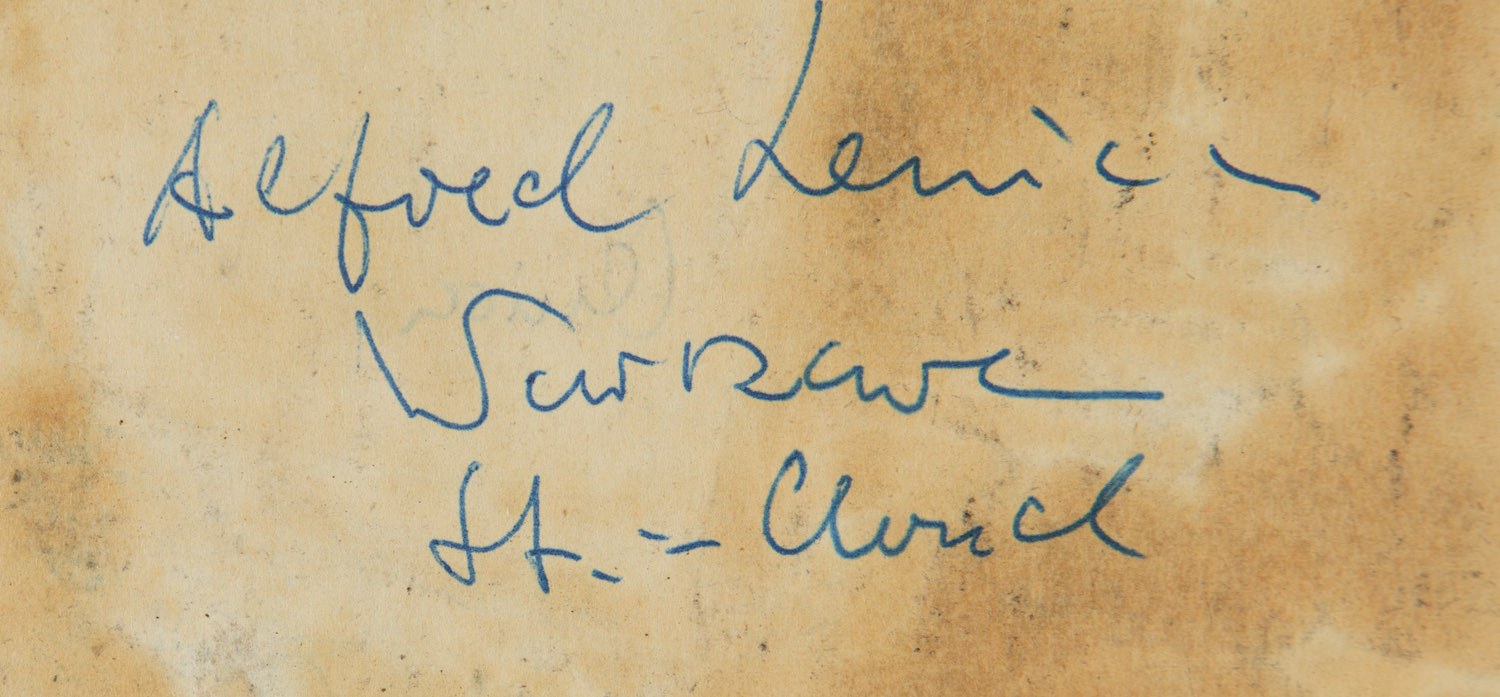 Alfred Lenica
Warszawa
St. - Cloud